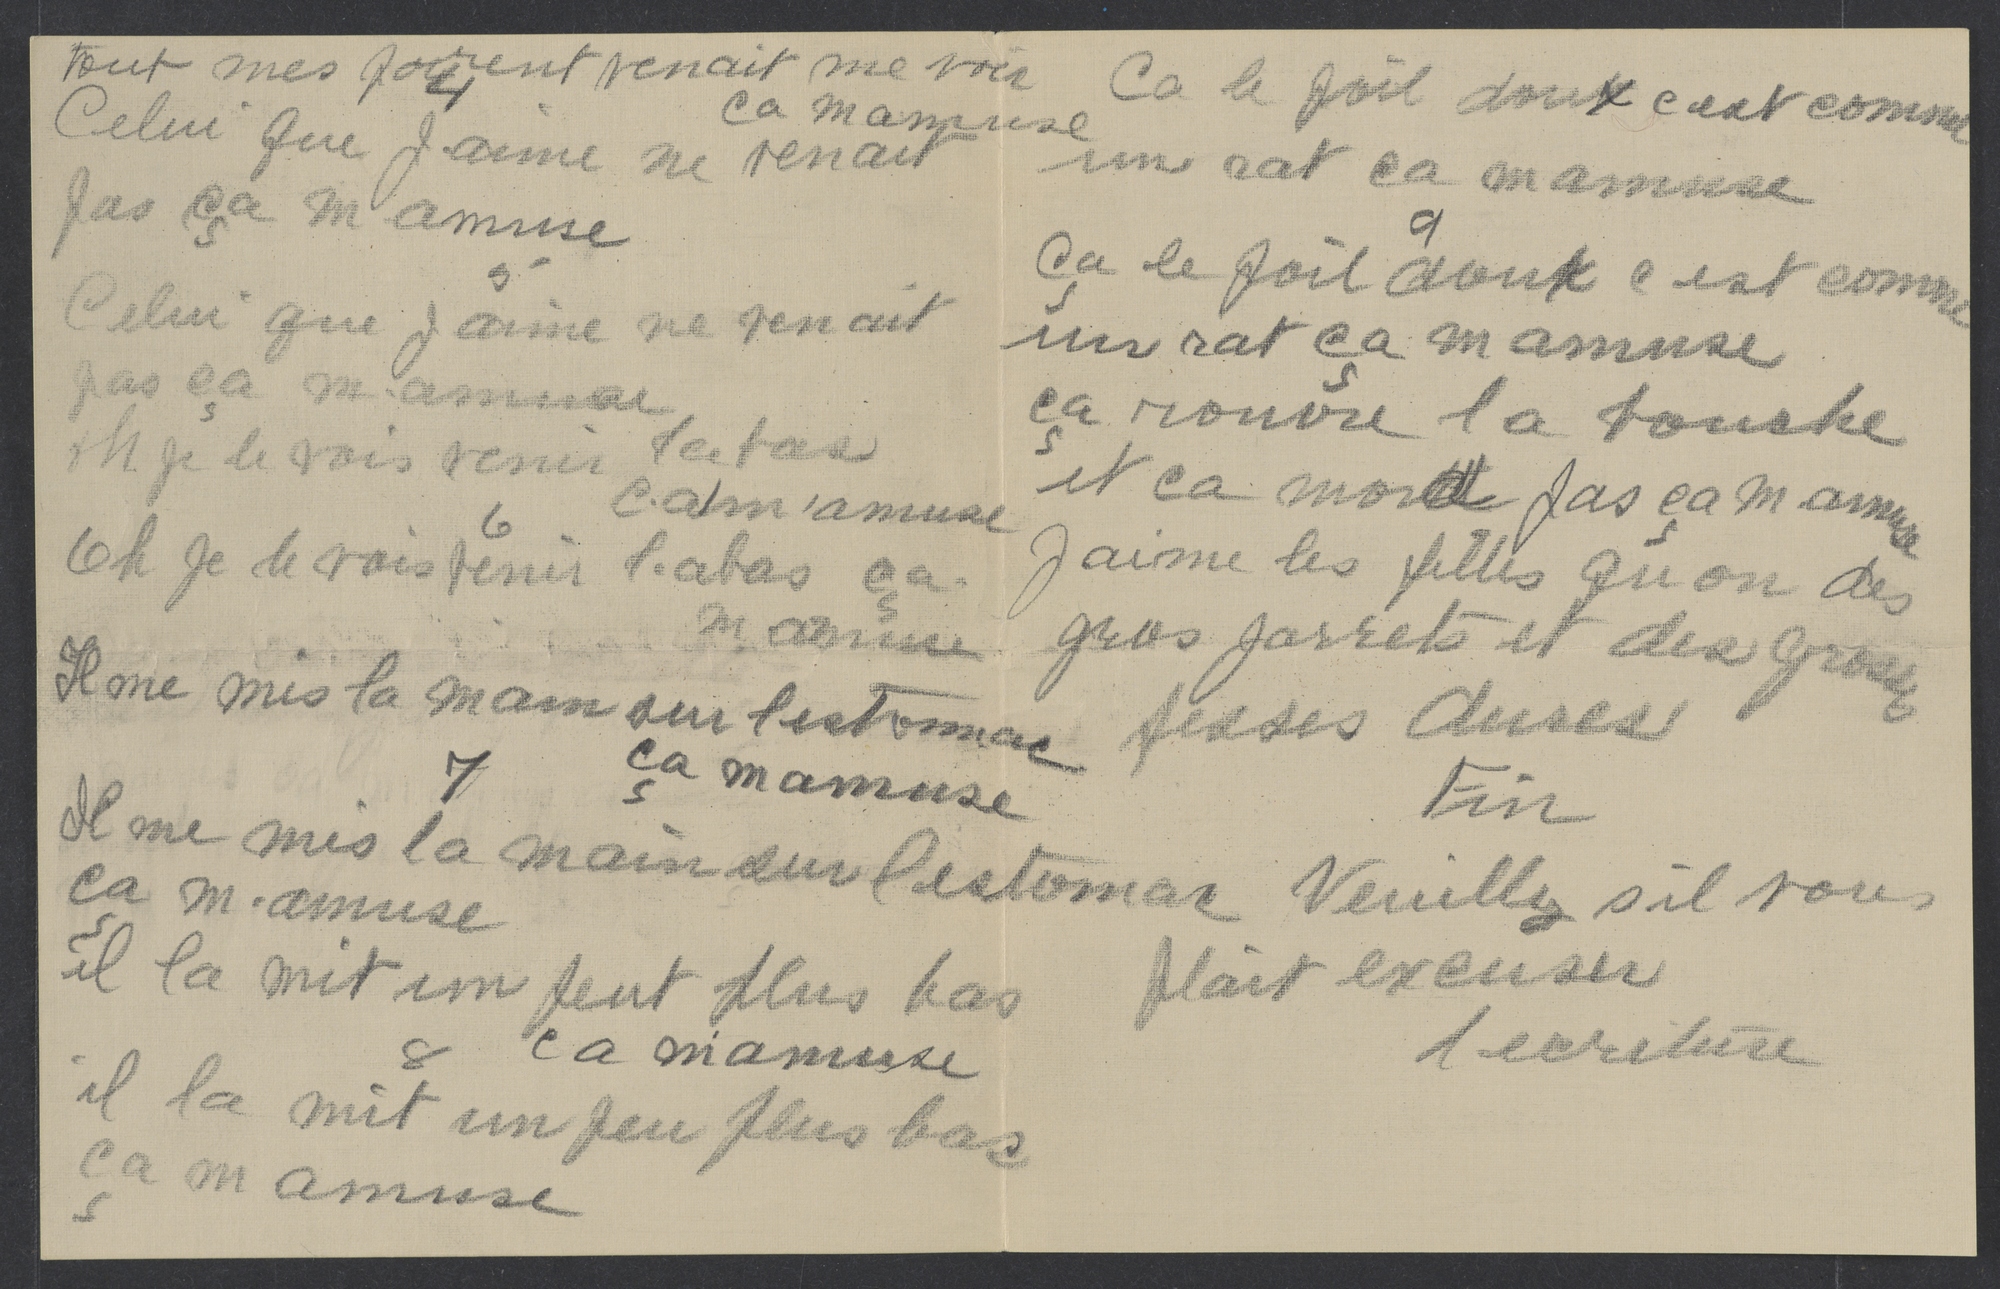 Tout mes parent venait me voir
ça mamuse
4
Celui que J aime ne venait
pas ça m amuse
5
Celui que j aime ne venait
pas ça m amuse
oh je le vois venir labas
ça m'amuse
6
Oh je le vois venir labas ça
m amuse
Il me mis la main sur lestomac
ça mamuse
7
Il me mis la main sur lestomac
ça m amuse
il la mit un peut plus bas
ca m'amuse
8
il la mit un peu plus bas
ça m amuse
Ca le poil doux c est comme
un rat ca mamuse
9
Ça le poil doux c est comme
un rat ça m amuse
ça rouvre la bouche
et ca mord pas ça m amuse
J aime les filles qu on des
gros jarrets et des grosses
fesses dures
Fin
Veuilly s il vous
plait excuser
l ecriture